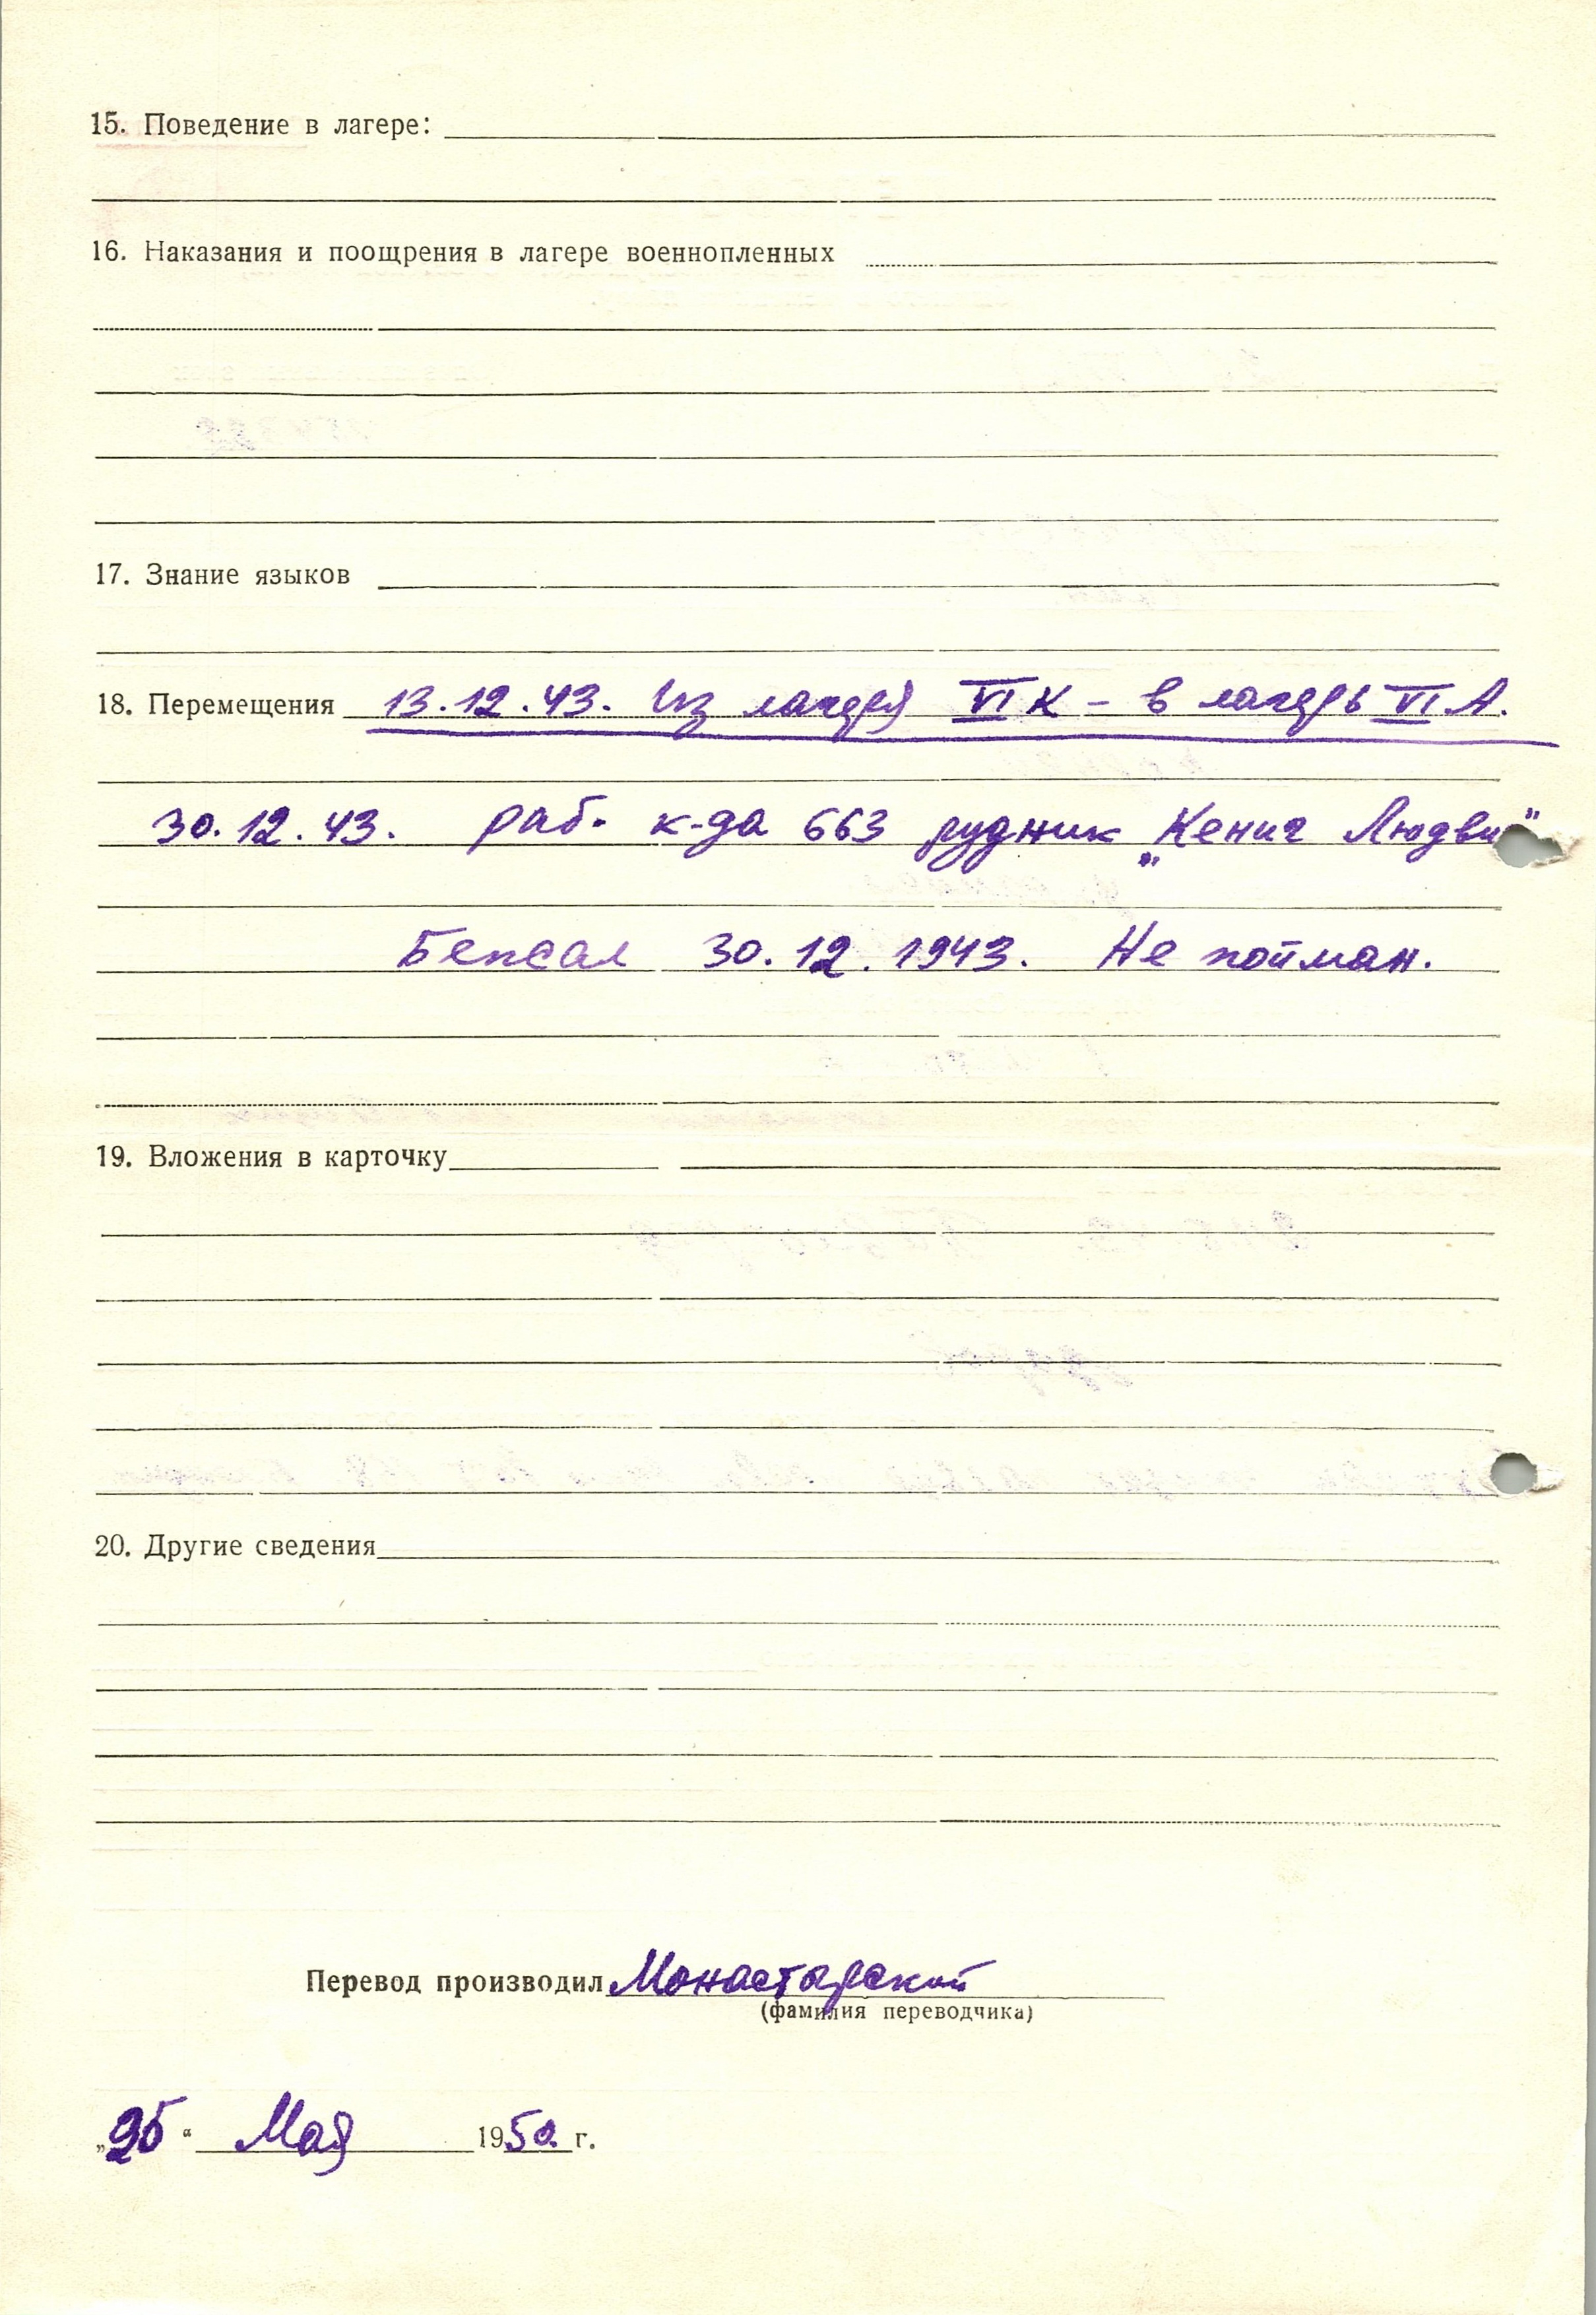 15. Поведение в лагере:
16. Наказания и поощрения в лагере военнопленных
17. Знание языков
18. Перемещения 13.12.43. Из лагеря VI К - в лагерь VI А.
30.12.43. раб. к-да 663 рудник „Кениг Людви"
Бежал 30.12.1943. Не пойман.
19. Вложения в карточку
20. Другие сведения
Перевод производил Монастарский
(фамилия переводчика)
„25“ Мая 1950 г.